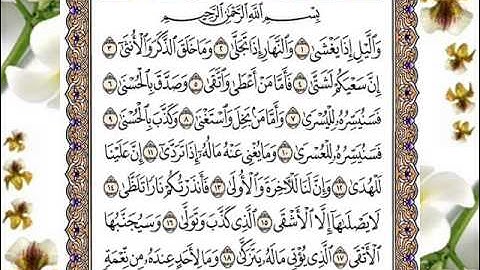 بِسْمِ اللَّهِ الرَّحْمَٰنِ الرَّحِيمِ
وَاللَّيْلِ إِذَا يَغْشَىٰ ١ وَالنَّهَارِ إِذَا تَجَلَّىٰ ٢ وَمَا خَلَقَ الذَّكَرَ وَالْأُنثَىٰ ٣
إِنَّ سَعْيَكُمْ لَشَتَّىٰ ٤ فَأَمَّا مَنْ أَعْطَىٰ وَاتَّقَىٰ ٥ وَصَدَّقَ بِالْحُسْنَىٰ ٦
فَسَنُيَسِّرُهُ لِلْيُسْرَىٰ ٧ وَأَمَّا مَنْ بَخِلَ وَاسْتَغْنَىٰ ٨ وَكَذَّبَ بِالْحُسْنَىٰ ٩
فَسَنُيَسِّرُهُ لِلْعُسْرَىٰ ١٠ وَمَا يُغْنِي عَنْهُ مَالُهُ إِذَا تَرَدَّىٰ ١١ إِنَّ عَلَيْنَا
لَلْهُدَىٰ ١٢ وَإِنَّ لَنَا لَلْآخِرَةَ وَالْأُولَىٰ ١٣ فَأَنذَرْتُكُمْ نَارًا تَلَظَّىٰ ١٤
لَا يَصْلَاهَا إِلَّا الْأَشْقَى ١٥ الَّذِي كَذَّبَ وَتَوَلَّىٰ ١٦ وَسَيُجَنَّبُهَا
الْأَتْقَى ١٧ الَّذِي يُؤْتِي مَالَهُ يَتَزَكَّىٰ ١٨ وَمَا لِأَحَدٍ عِندَهُ مِن نِّعْمَةٍ